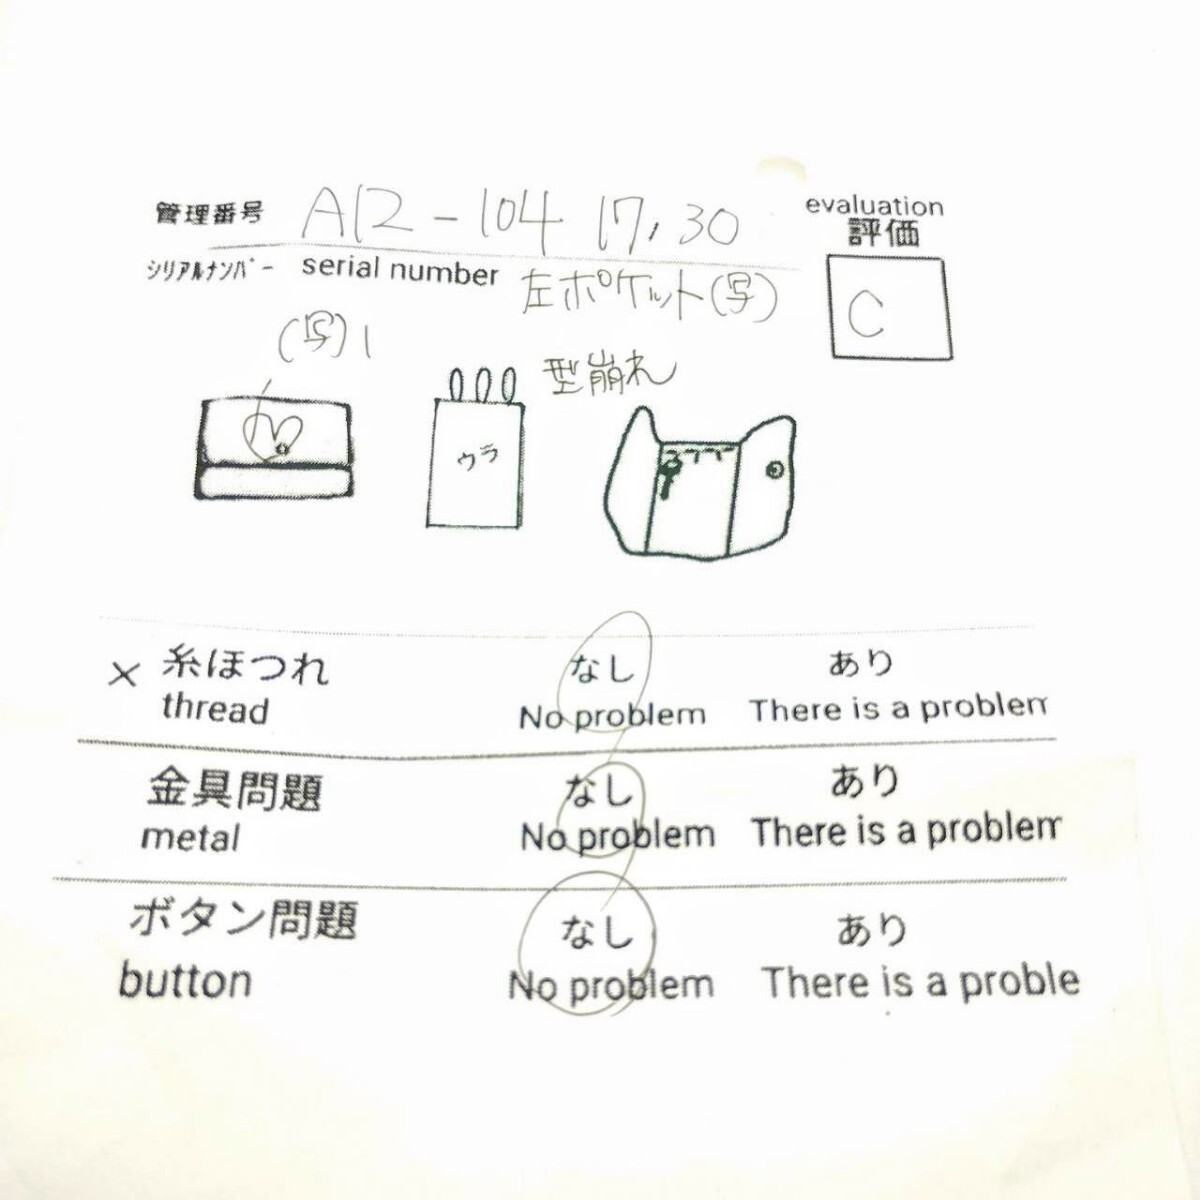 管理番号 A12-104 17,30
evaluation
評価
シリアルナンバー serial number 左ポケット(写)
C
(写)1
型崩れ
ウラ
× 糸ほつれ なし あり
thread No problem There is a problem
金具問題 なし あり
metal No problem There is a problem
ボタン問題 なし あり
button No problem There is a proble